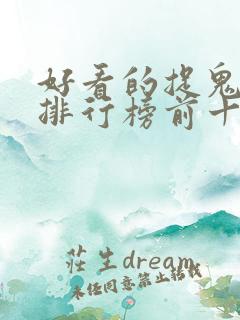 好看的捉鬼
排行榜前十
莊生dream
未经同意禁止转载